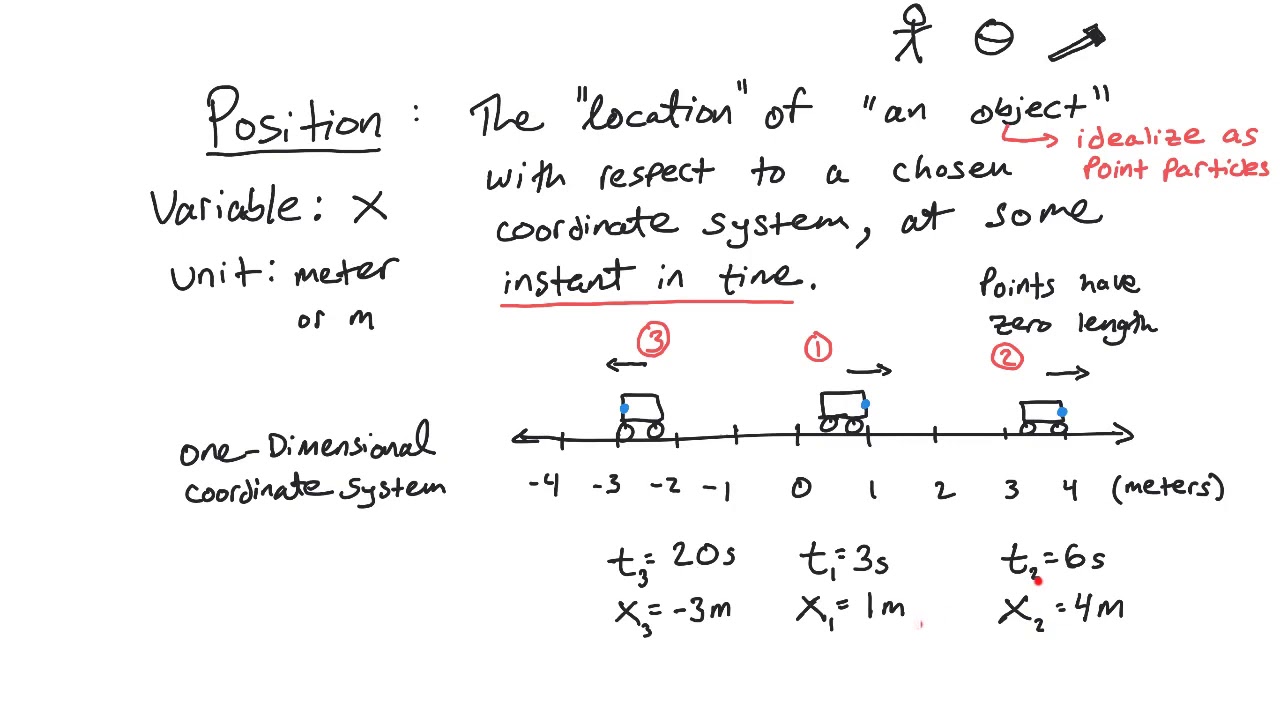 Position: The "location" of "an object"
idealize as
Point Particles
with respect to a chosen
Variable: x
coordinate system, at some
unit: meter
or m
instant in time.
Points have
zero length
3 1 2
one-Dimensional
coordinate system
-4 -3 -2 -1 0 1 2 3 4 (meters)
t3= 20s t1= 3s t2= 6s
x3= -3m x1= 1m x2= 4m